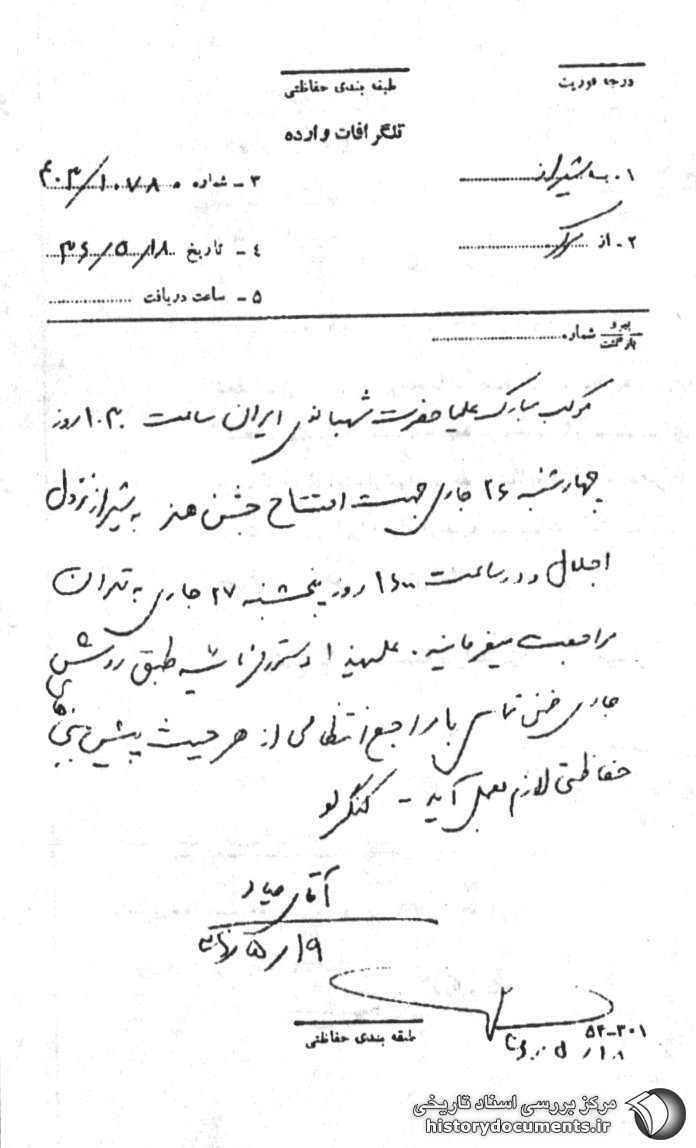 درجه فوریت
طبقه بندی حفاظتی
تلگرافات وارده
۱- به شیراز
۳- شماره ۴۰۳/۱۰۷۸۰
۲- از مرکز
۴- تاریخ ۳۶/۵/۱۸
۵- ساعت دریافت
پیرو بازگشت شماره
موکب مبارک علیاحضرت شهبانوی ایران ساعت ۱۰۳۰ روز
چهارشنبه ۲۶ جاری جهت افتتاح جشن هنر به شیراز نزول
اجلال و در ساعت ۱۶۰۰ روز پنجشنبه ۲۷ جاری به تهران
مراجعت میفرمایند. علیهذا دستور فرمائید طبق روش های
جاری ضمن تماس با مراجع انتظامی از هر حیث پیش بینی های
حفاظتی لازم بعمل آید - کنگرلو
آقای صیاد
۱۹/۵/۳۶
۵۲-۳۰۱
طبقه بندی حفاظتی
مرکز بررسی اسناد تاریخی
historydocuments.ir